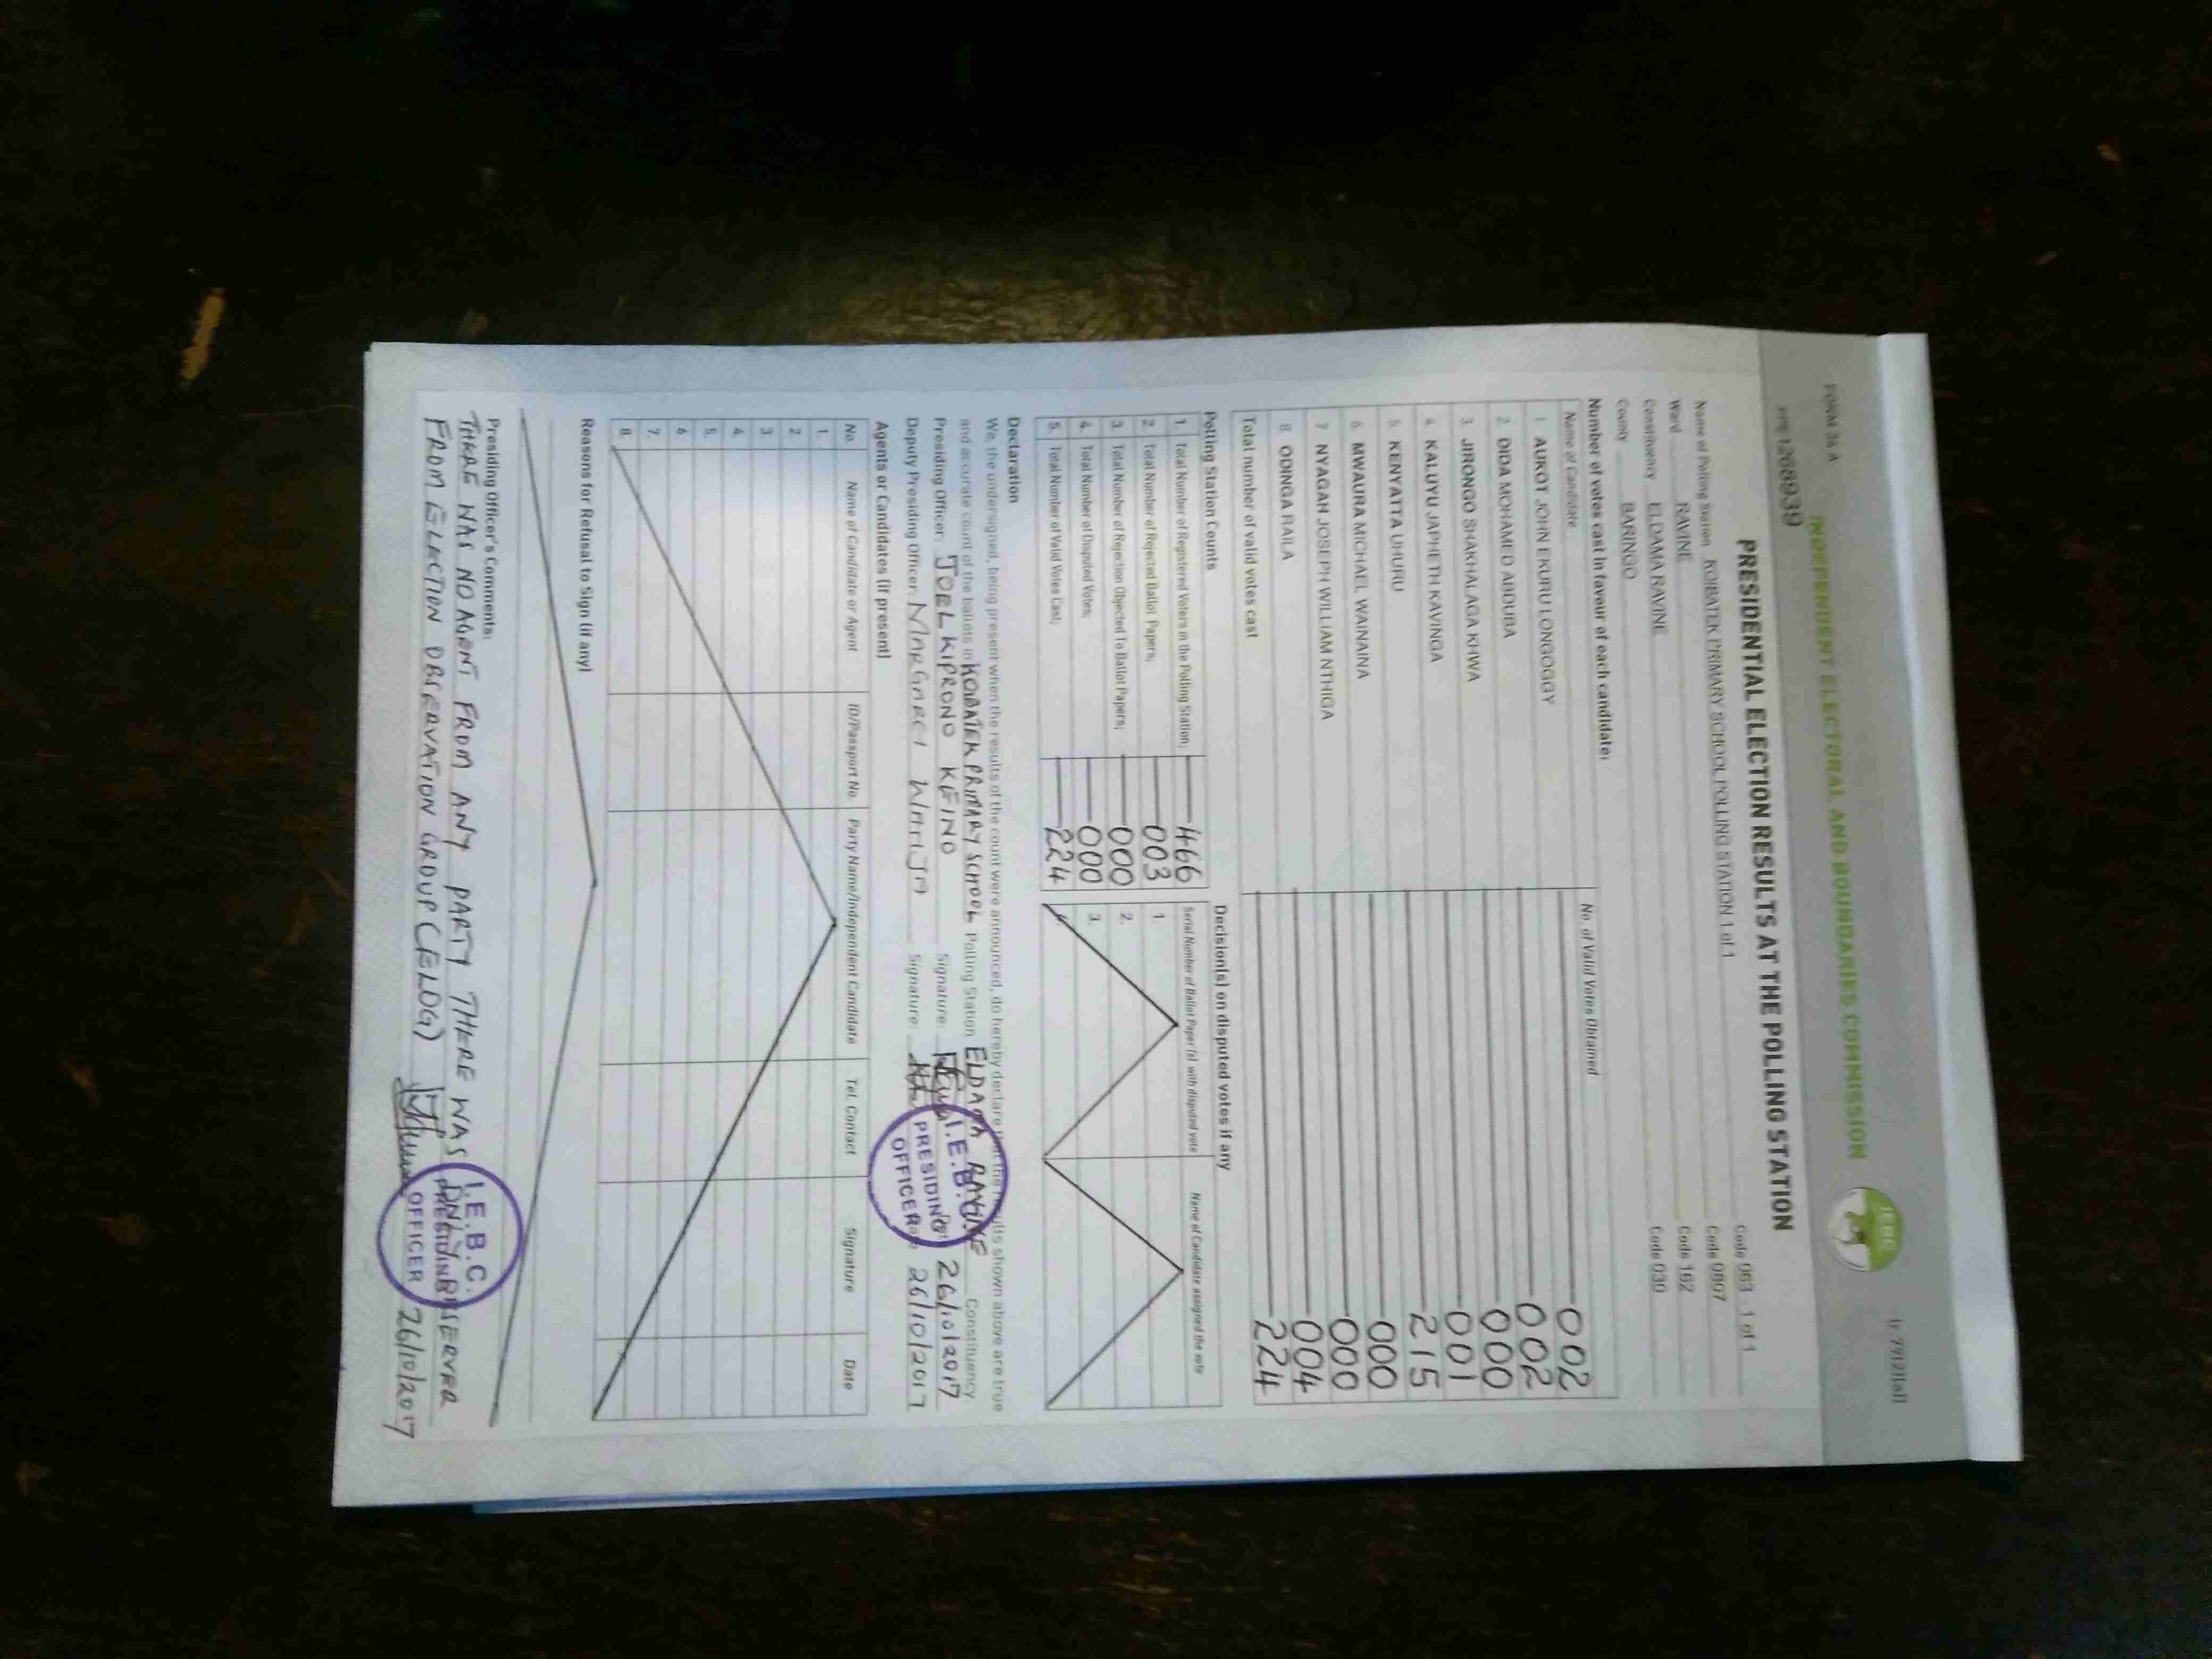 FORM 34 A
INDEPENDENT ELECTORAL AND BOUNDARIES COMMISSION
IEBC
PRESIDENTIAL ELECTION RESULTS AT THE POLLING STATION
Name of Polling Station KOIBATEK PRIMARY SCHOOL POLLING STATION 1 of 1 Code 063 1 of 1
Ward RAVINE Code 0807
Constituency ELDAMA RAVINE Code 162
County BARINGO Code 030
Number of votes cast in favour of each candidate:
Name of Candidate No. of Valid Votes Obtained
1 AUKOT JOHN EKURU LONGOGGY 002
2 DIDA MOHAMED ABDUBA 002
3 JIRONGO SHAKHALAGA KHWA 000
4 KALUYU JAPHETH KAVINGA 001
5 KENYATTA UHURU 215
6 MWAURA MICHAEL WAINAINA 000
7 NYAGAH JOSEPH WILLIAM NTHIGA 000
8 ODINGA RAILA 004
Total number of valid votes cast 224
Polling Station Counts
1. Total Number of Registered Voters in the Polling Station; 466
2. Total Number of Rejected Ballot Papers; 003
3. Total Number of Rejection Objected To Ballot Papers; 000
4. Total Number of Disputed Votes; 000
5. Total Number of Valid Votes Cast; 224
Decision(s) on disputed votes if any
Serial Number of Ballot Paper (s) with disputed vote Name of Candidate assigned the vote
1.
2.
3.
Declaration
We, the undersigned, being present when the results of the count were announced, do hereby declare that the results shown above are true
and accurate count of the ballots in KOIBATEK PRIMARY SCHOOL Polling Station ELDAMA RAVINE Constituency.
Presiding Officer: JOEL KIPRONO KEINO Signature: 26/10/2017
Deputy Presiding Officer: MARGARET Signature: Date 26/10/2017
I.E.B.C.
PRESIDING
OFFICER
Agents or Candidates (if present)
No. Name of Candidate or Agent ID/Passport No. Party Name/Independent Candidate Tel. Contact Signature Date
1.
2.
3.
4.
5.
6.
7.
8.
Reasons for Refusal to Sign (if any)
Presiding Officer's Comments:
THERE WAS NO AGENT FROM ANY PARTY THERE WAS ONLY OBSERVER
FROM ELECTION OBSERVATION GROUP (ELOG) 26/10/2017
I.E.B.C.
PRESIDING
OFFICER